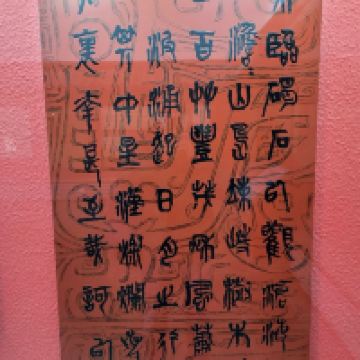 臨碣石以觀滄
澹山島竦峙樹木
百草豐茂秋風蕭
波涌起日月之行
其中星漢燦爛
裏幸甚至哉歌以